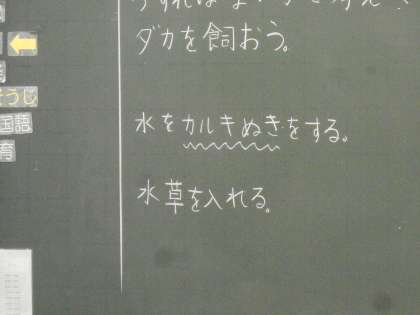 ダカを飼おう。
水をカルキぬきをする。
水草を入れる。
そうじ
国語
育